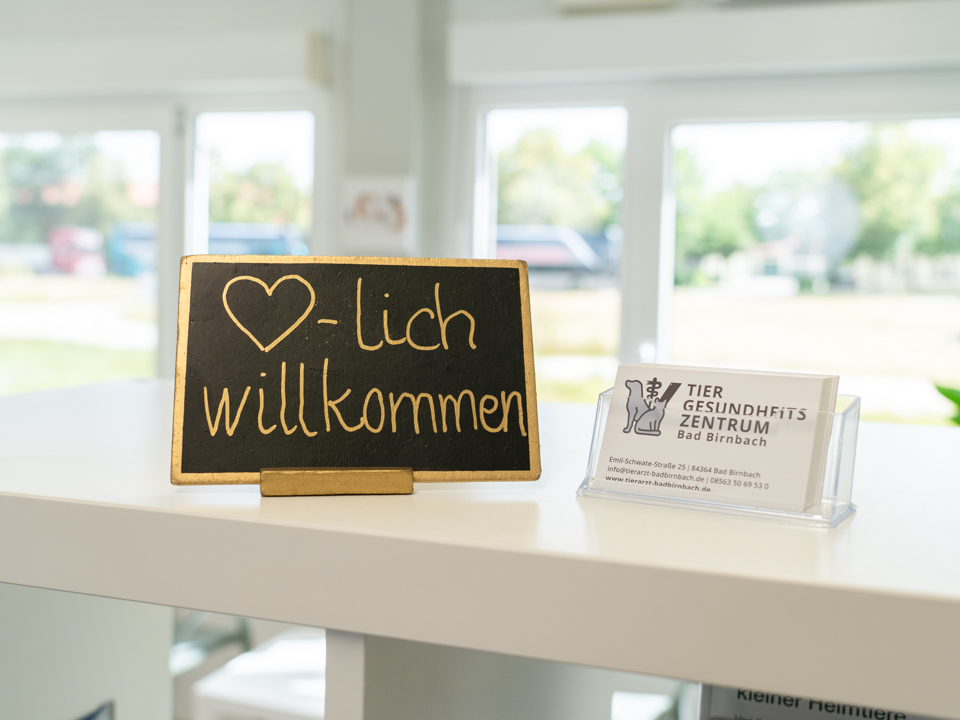 ♥-lich
willkommen
TIER
GESUNDHEiTS
ZENTRUM
Bad Birnbach
Emil-Schwate-Straße 25 | 84364 Bad Birnbach
info@tierarzt-badbirnbach.de | 08563 50 69 53 0
www.tierarzt-badbirnbach.de
kleiner Heimtiere